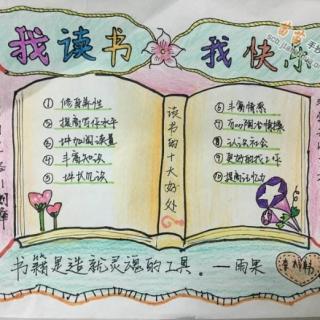 我读书 我快乐
读书的十大好处
① 修身养性
② 提高写作水平
③ 增加阅读量
④ 丰富知识
⑤ 增长见识
⑥ 丰富情感
⑦ 可以陶冶情操
⑧ 认识社会
⑨ 更好的找工作
⑩ 提高记忆力
书籍是造就灵魂的工具。——雨果